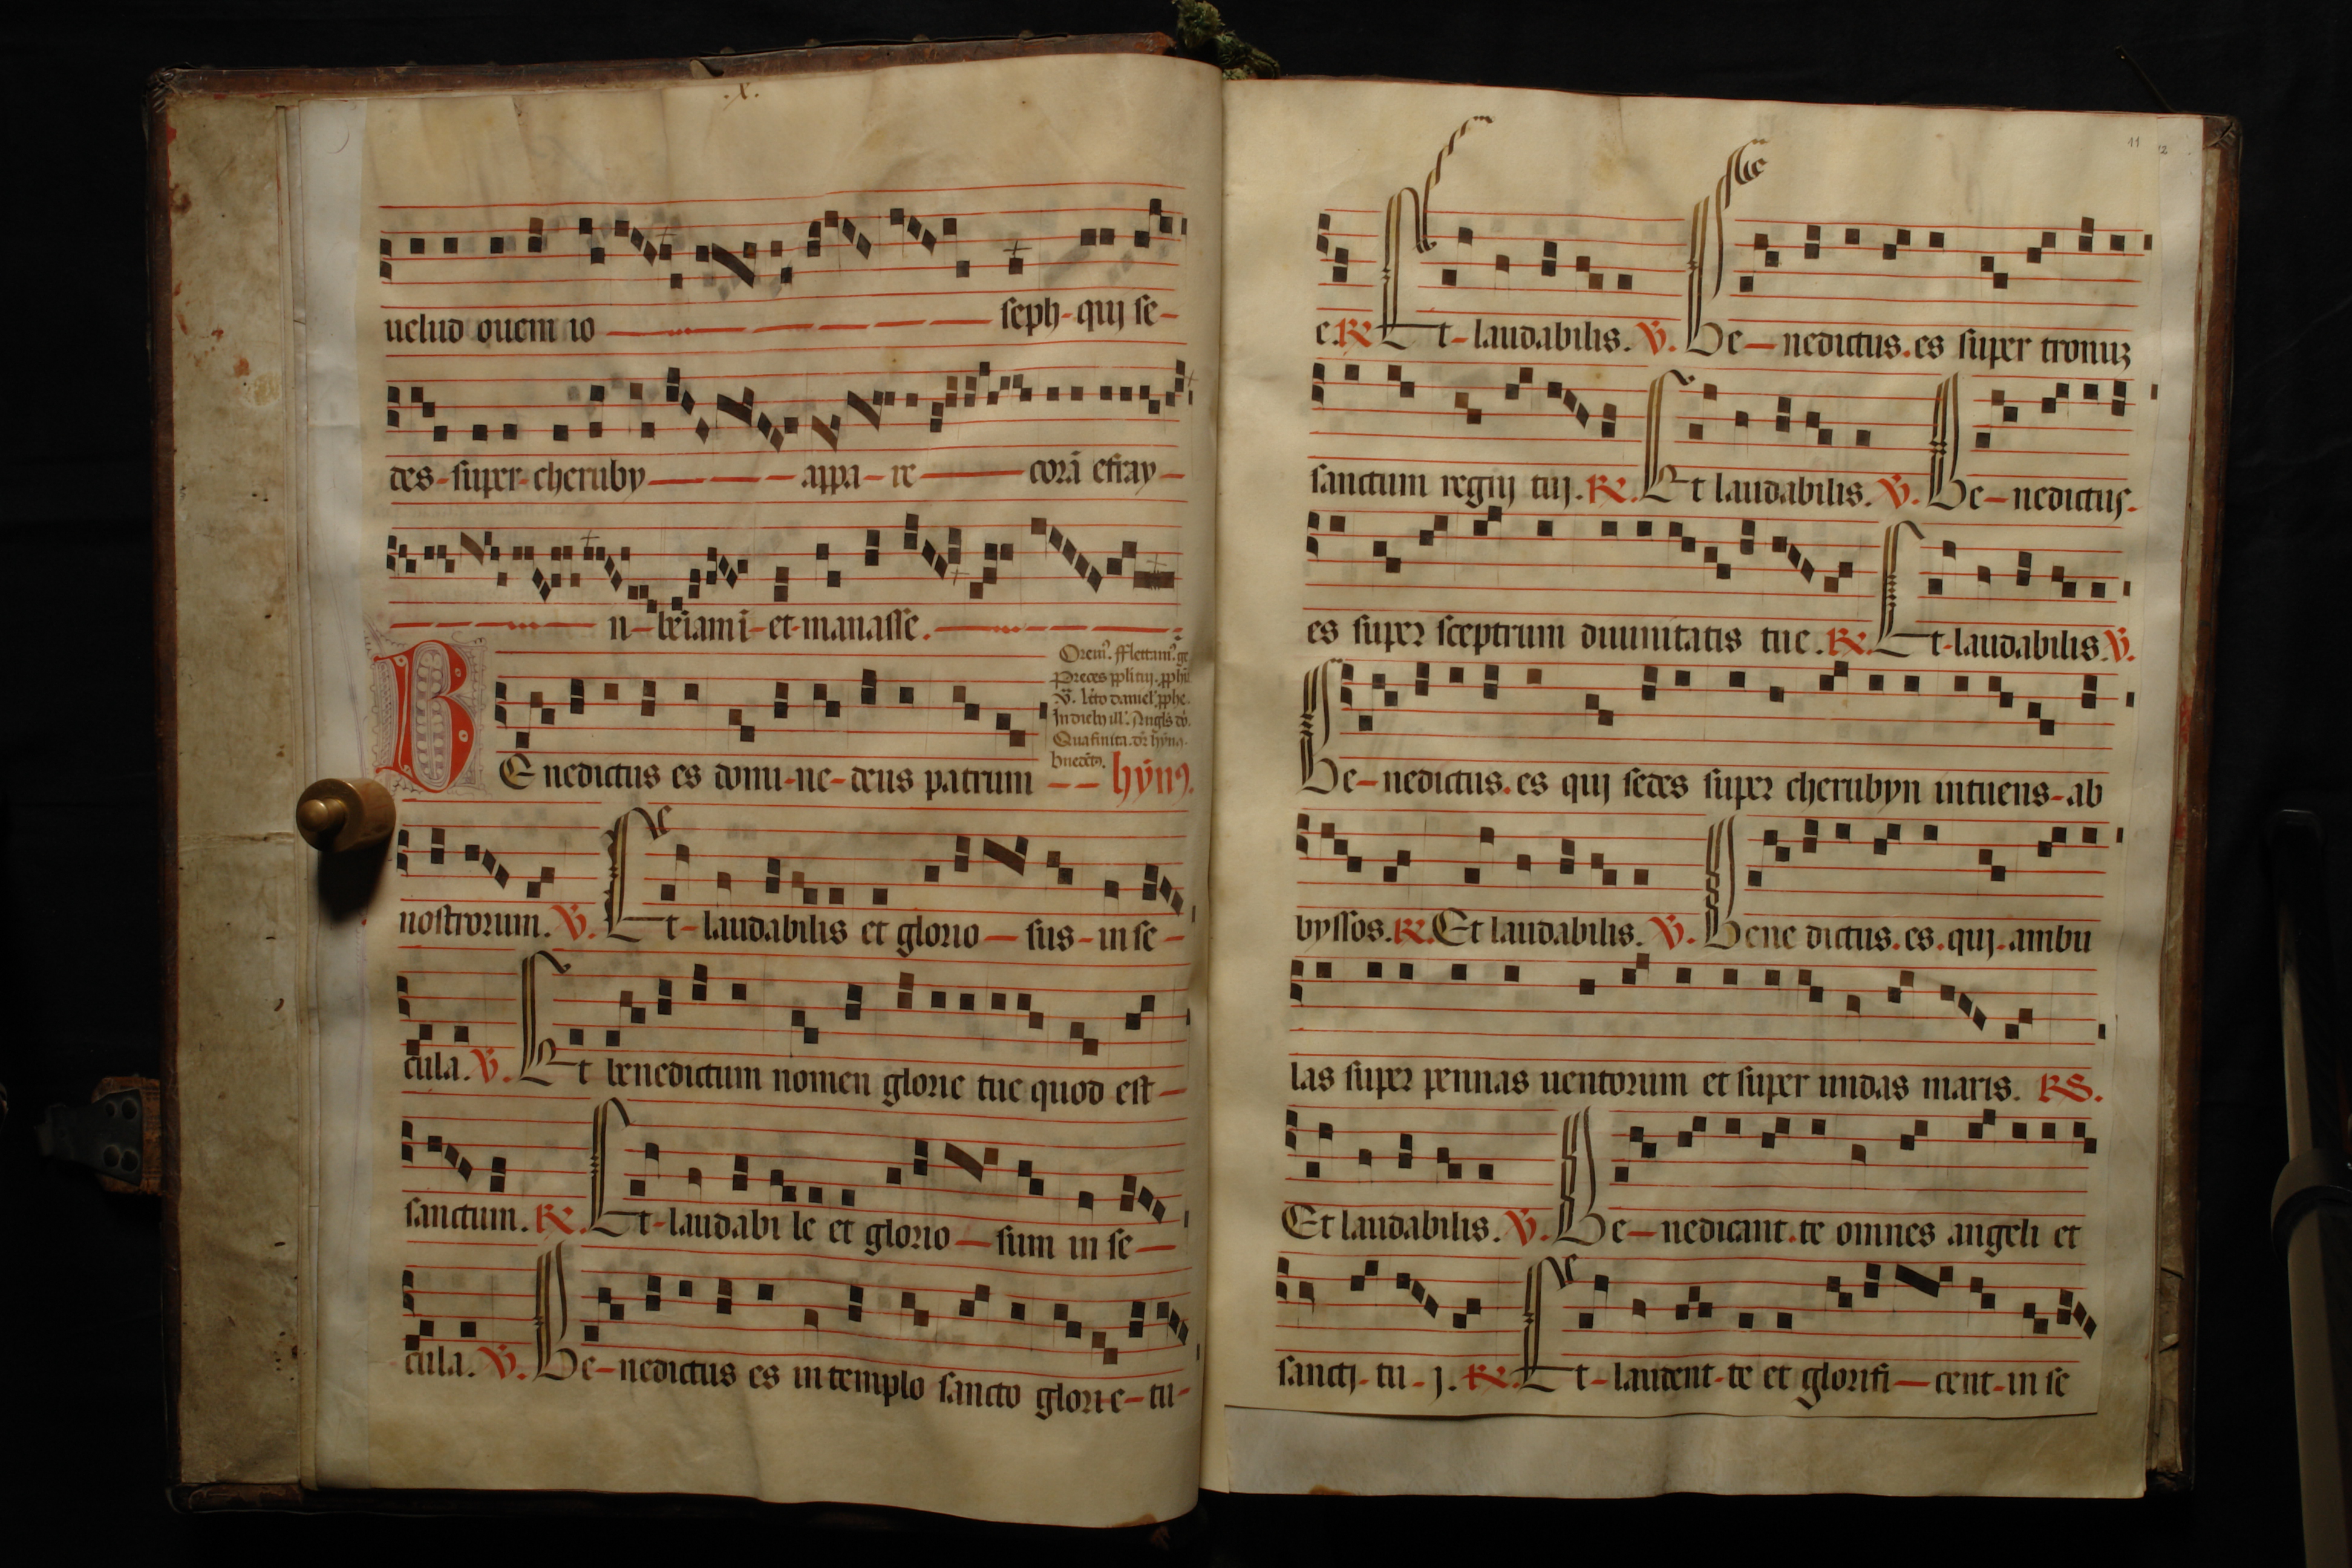 .x.
uelud ouem io seph-qui se-
des-super-cheruby appa-re corā efray-
n-beiami-et-manasse.
Preces
BEnedictus es domi-ne-deus patrum hÿm9.
nostrorum. V. Et-laudabilis et glorio-sus-in se-
cula. V. Et benedictum nomen glorie tue quod est-
sanctum. R. Et-laudabi le et glorio-sum in se-
cula. V. Be-nedictus es in templo sancto glori-e-tu-
11 12
e. R. Et-laudabilis. V. Be-nedictus.es super tronuz
sanctum regnj tuj. R. Et laudabilis. V. Be-nedictus.
es super sceptrum diuinitatis tue. R. Et-laudabilis. V.
Be-nedictus.es quj sedes super cherubyn intuens-ab
byssos. R. Et laudabilis. V. Bene dictus.es.quj.ambu
las super pennas uentorum et super undas maris. RS.
Et laudabilis. V. Be-nedicant.te omnes angeli et
sanctj-tu-j. R. Et-laudent-te et glorifi-cent-in se